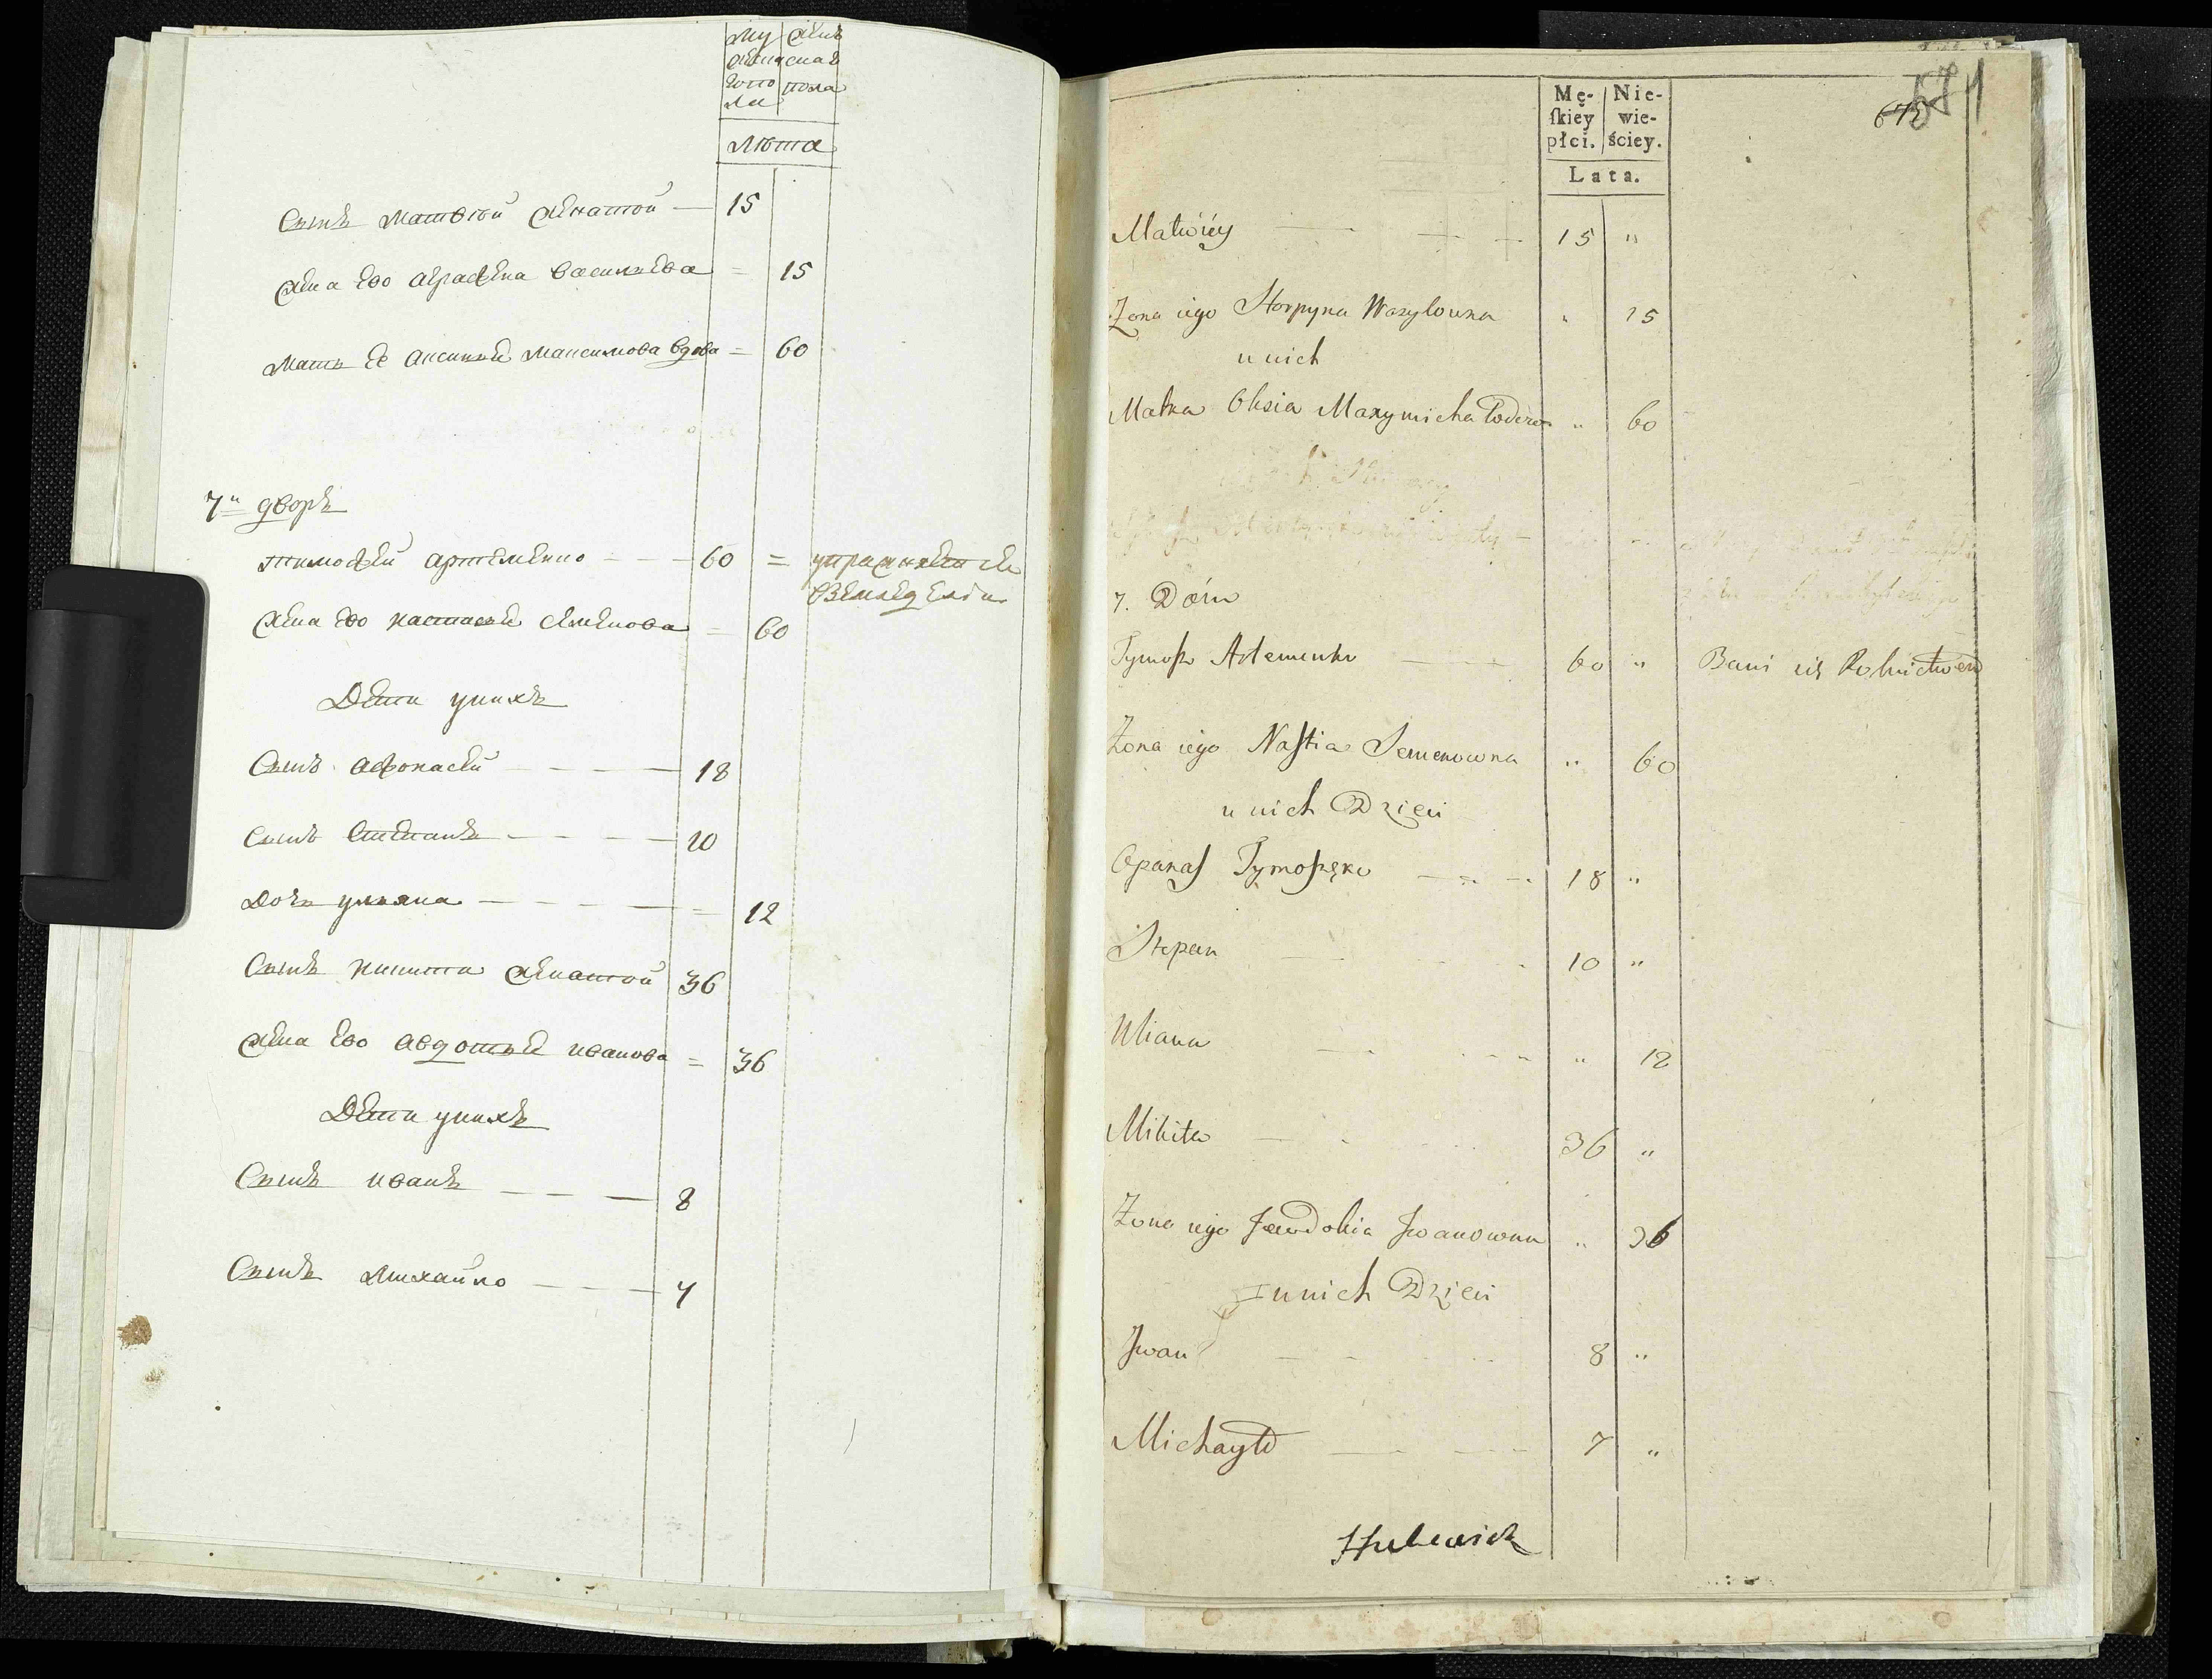 му
жеска
го по
ла
жен
ска
пола
лѣта
Сынъ матвѣй женатой — 15
жена ево аграфена васильева = 15
мать ее аксинья максимова вдова = 60
7й дворъ
тимофей артеменко — — — 60 = упражняется
вземледелии
жена ево настасья семенова = 60
Дети унихъ
Сынъ афонасей — — — 18
Сынъ Степанъ — — — 10
дочь ульяна — — — = 12
Сынъ никита женатой 36
жена ево авдотья иванова = 36
Дети унихъ
Сынъ иванъ — — — 8
Сынъ михайло — — — 7
671
Mę-
skiey
płci.
Nie-
wie-
ściey.
Lata.
Matwiey — 15 "
Zona iego Horpyna Wasylowna " 15
u nich
Matka Oksia Maxymicha Wdowa " 60
7. Dóm
Tymosz Artemenko — 60 " Bawi się Rolnictwem
Zona iego Nastia Semenowna " 60
u nich Dzieci
Opanas Tymoszęko — 18 "
Stepan 10 "
Uliana " 12
Mikita 36 "
Zona iego Jewdokia Iwanowna " 36
u nich Dzieci
Iwan 8 "
Michayło 7 "
Hulewicz